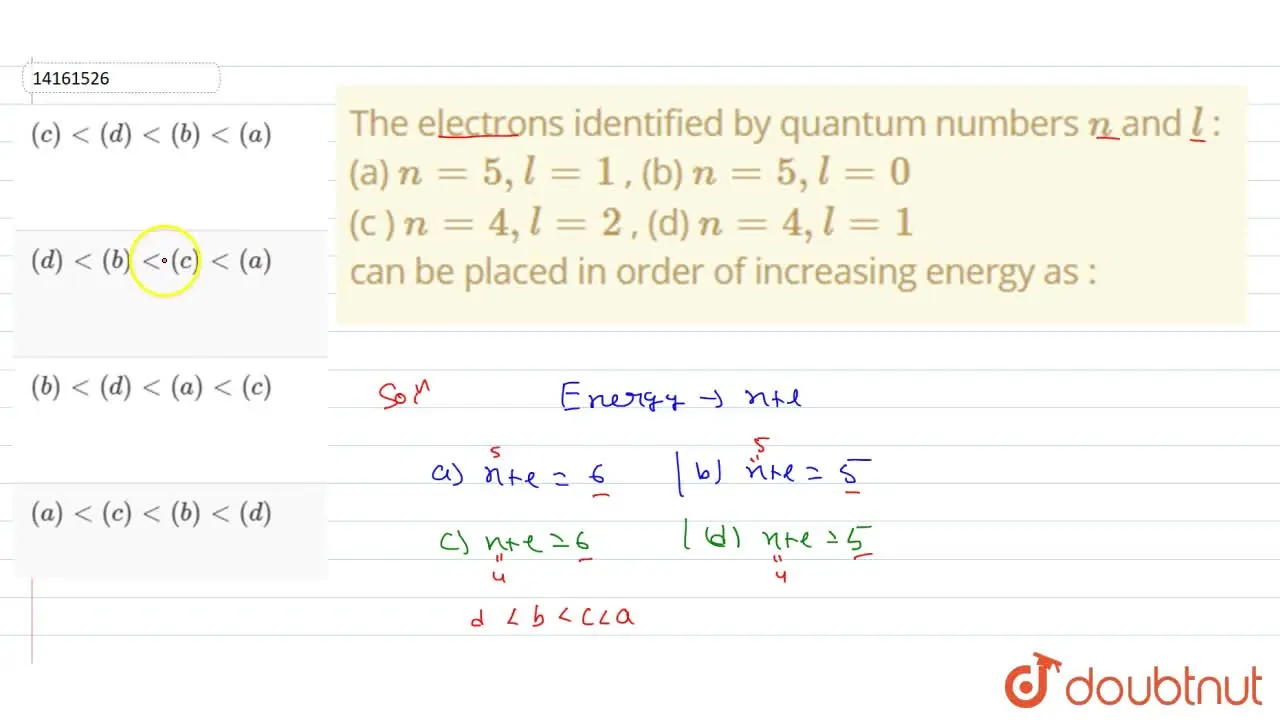 14161526
(c) < (d) < (b) < (a)
(d) < (b) < (c) < (a)
(b) < (d) < (a) < (c)
(a) < (c) < (b) < (d)
The electrons identified by quantum numbers n and l :
(a) n = 5, l = 1 , (b) n = 5, l = 0
(c ) n = 4, l = 2 , (d) n = 4, l = 1
can be placed in order of increasing energy as :
Soln Energy → n+l
5 5
a) n+l = 6 | b) n+l = 5
c) n+l = 6 | (d) n+l = 5
4 4
d < b < c < a
doubtnut